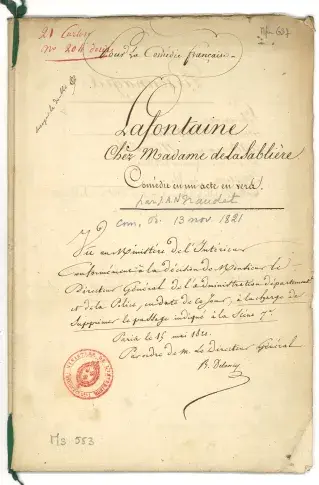 21 Carton
Ms 683
Pour la Comédie française.
Lafontaine
Chez Madame de La Sablière
Comédie en un acte en vers.
par J.A.N Naudet
com. fr. 13 nov. 1821
Vu au Ministère de l'Intérieur
Conformément à la décision de Monsieur le
Directeur Général de l'administration départementale
et de la Police, en date de ce jour, à la charge de
supprimer le passage indiqué à la Scène 7e.
Paris le 15 mai 1821.
Par ordre de M. le Directeur Général
MS 553